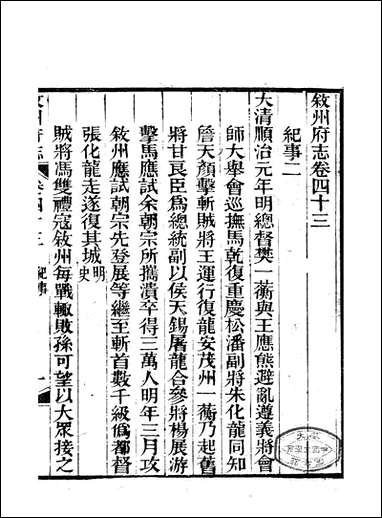 敘州府志卷四十三
紀事二
大清順治元年明總督樊一蘅與王應熊避亂遵義將會
師大舉會巡撫馬乾復重慶松潘副將朱化龍同知
詹天顏擊斬賊將王運行復龍安茂州一蘅乃起舊
將甘良臣爲總統副以侯天錫屠龍合參將楊展游
擊馬應試余朝宗所攜潰卒得三萬人明年三月攻
敘州應試朝宗先登展等繼至斬首數千級僞都督
張化龍走遂復其城明史
賊將馮雙禮寇敘州每戰輒敗孫可望以大眾接之
敘州府志
卷四十三 紀事
一